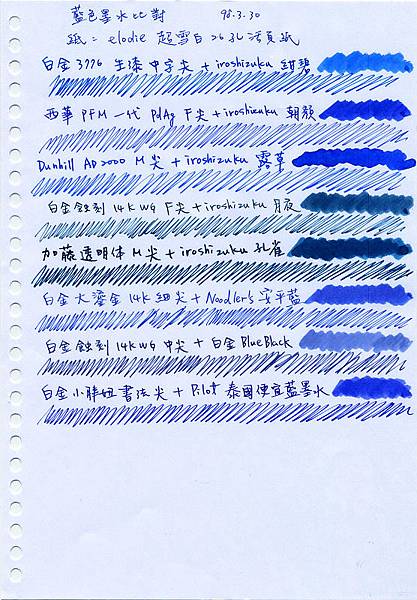 藍色墨水比對 98.3.30
紙：elodie 超雪白 26孔活頁紙
白金 3776 生漆 中字尖 + iroshizuku 紺碧
西華 PFM 一代 PdAg F尖 + iroshizuku 朝顏
Dunhill AD2000 M尖 + iroshizuku 露草
白金蝕刻 14K WG F尖 + iroshizuku 月夜
加藤透明体 M尖 + iroshizuku 孔雀
白金大漆金 14K 細尖 + Noodler's 安平藍
白金蝕刻 14K WG 中尖 + 白金 BlueBlack
白金小胖妞書法尖 + Pilot 泰國便宜藍墨水